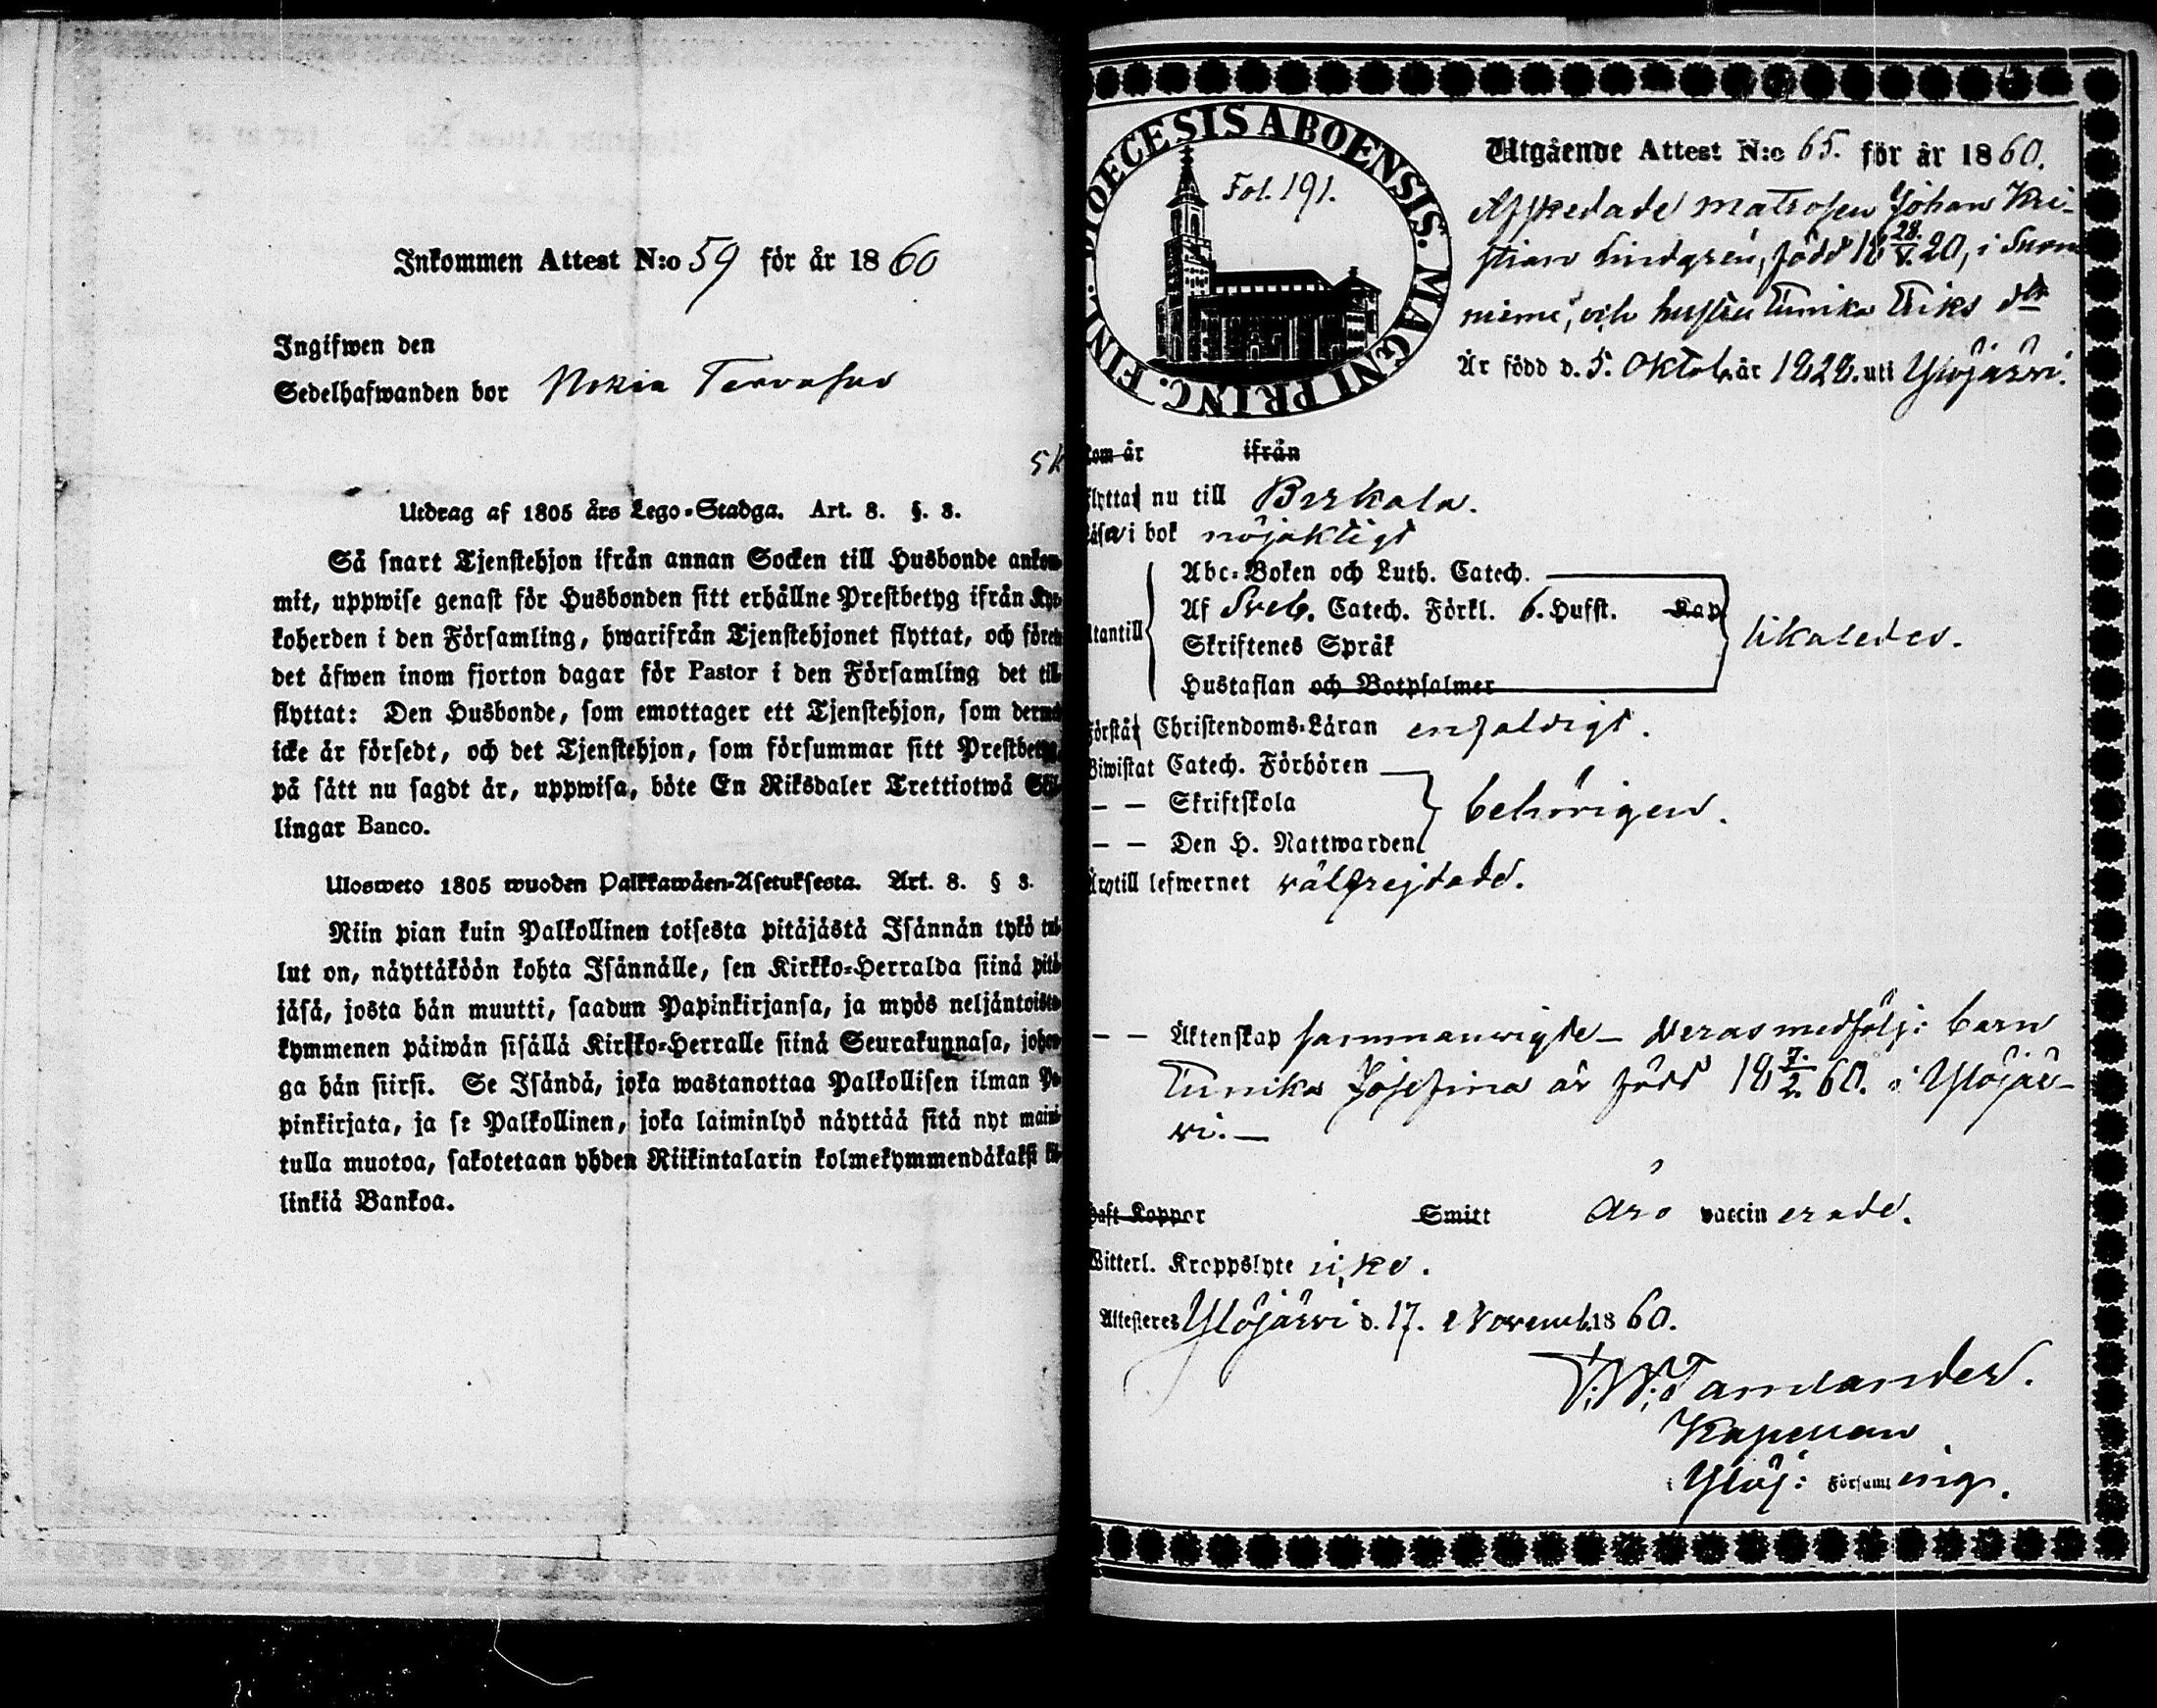 Inkommen Attest N:o 59 för år 1860
Ingifwen den
Sedelhafwanden bor Nokia
Utdrag af 1805 års Lego-Stadga. Art. 8. §. 3.
Så snart Tjenstehjon ifrån annan Socken till Husbonde ankom-
mit, uppwise genast för Husbonden sitt erhållne Prestbetyg ifrån Kyr-
koherden i den Församling, hwarifrån Tjenstehjonet flyttat, och förete
det äfwen inom fjorton dagar för Pastor i den Församling det till-
flyttat: Den Husbonde, som emottager ett Tjenstehjon, som dermed
icke är försedt, och det Tjenstehjon, som försummar sitt Prestbetyg,
på sätt nu sagdt är, uppwisa, böte En Riksdaler Trettiotwå Skil-
lingar Banco.
Ulosweto 1805 wuoden Palkkawäen-Asetuksesta. Art. 8. § 3.
Niin pian kuin Palkollinen toisesta pitäjästä Isännän tykö tul-
lut on, näyttäköön kohta Isännälle, sen Kirkko-Herralda siinä pitä-
jäsä, josta hän muutti, saadun Papinkirjansa, ja myös neljäntoista-
kymmenen päiwän sisällä Kirkko-Herralle siinä Seurakunnasa, johon-
ga hän siirsi. Se Isändä, joka wastanottaa Palkollisen ilman Pa-
pinkirjata, ja se Palkollinen, joka laiminlyö näyttää sitä nyt maini-
tulla muotoa, sakotetaan yhden Riikintalarin kolmekymmendäkaksi kil-
linkiä Bankoa.
DIOECESIS ABOENSIS. MAGNI PRINC. FINL.
Fol. 191.
Utgående Attest N:o 65. för år 1860.
Afskedade matrosen Johan Kri-
stian Lindgren, född 18 28/V. 20, i Suon
niemi, och hustru Eriks dtr
Är född d. 5. Oktob. år 1828. uti Ylöjärvi.
Kom år ifrån
Flyttat nu till Birkala.
Läsa i bok nöjaktigt
Utantill
Abc-Boken och Luth. Catech.
Af Sveb. Catech. Förkl. 6. Hufst. Kap
Skriftenes Språk
Hustaflan och Botpsalmer
likaledes.
Förstå Christendoms-Läran enfaldigt.
Biwistat Catech. Förhören
— — Skriftskola
— — Den H. Nattwarden
behörigen.
Äro till lefwernet välfrejdade.
— — Äktenskap sammanvigde — Deras medfölj: barn
Josefina är född 18 7/2 60. i Ylöjär-
vi. —
Haft Koppor Smitt Äro vaccinerade.
Witterl. Kroppslyte icke.
Attesteres Ylöjärvi d. 17. Novemb. 1860.
Kapellan
i Ylöj: Församling.